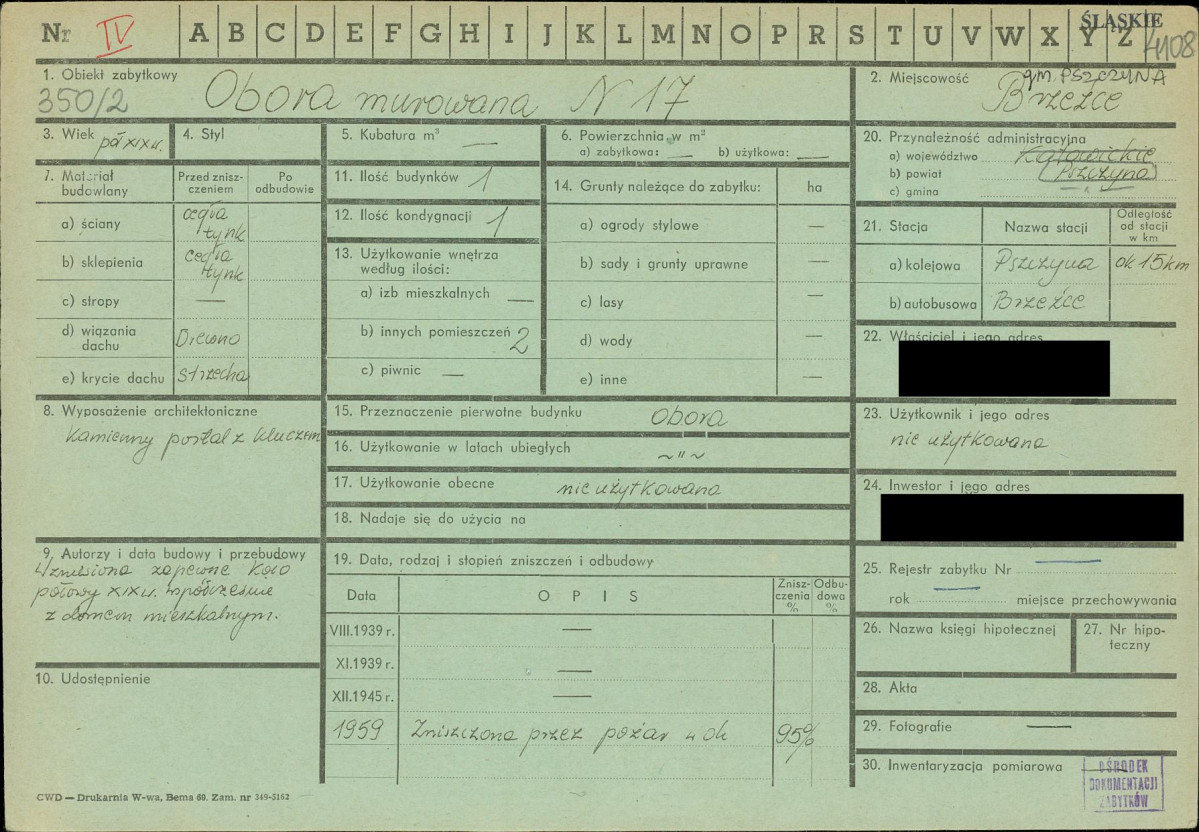 Nr IV A B C D E F G H I J K L M N O P R S T U V W X Y Z
ŚLĄSKIE
4108
1. Obiekt zabytkowy
350/2 Obora murowana N 17
2. Miejscowość gm. PSZCZYNA
Brzeźce
3. Wiek poł XIX w.
4. Styl
5. Kubatura m³ —
6. Powierzchnia w m²
a) zabytkowa: — b) użytkowa: —
7. Materiał budowlany
Przed zniszczeniem
Po odbudowie
a) ściany cegła tynk
b) sklepienia cegła tynk
c) stropy —
d) wiązania dachu Drewno
e) krycie dachu strzecha
8. Wyposażenie architektoniczne
Kamienny portal z kluczem
9. Autorzy i data budowy i przebudowy
Wzniesiona zapewne koło
połowy XIX w. współcześnie
z domem mieszkalnym.
10. Udostępnienie
11. Ilość budynków 1
12. Ilość kondygnacji 1
13. Użytkowanie wnętrza
według ilości:
a) izb mieszkalnych —
b) innych pomieszczeń 2
c) piwnic —
14. Grunty należące do zabytku: ha
a) ogrody stylowe —
b) sady i grunty uprawne —
c) lasy —
d) wody —
e) inne —
15. Przeznaczenie pierwotne budynku obora
16. Użytkowanie w latach ubiegłych ~ " ~
17. Użytkowanie obecne nie użytkowana
18. Nadaje się do użycia na
19. Data, rodzaj i stopień zniszczeń i odbudowy
Data OPIS Zniszczenia % Odbudowa %
VIII.1939 r. —
XI.1939 r. —
XII.1945 r. —
1959 Zniszczona przez pożar w ok 95%
20. Przynależność administracyjna
a) województwo Katowickie
b) powiat Pszczyna
c) gmina
21. Stacja Nazwa stacji Odległość od stacji w km
a) kolejowa Pszczyna ok 15 km
b) autobusowa Brzeźce
22. Właściciel i jego adres
23. Użytkownik i jego adres
nie użytkowana
24. Inwestor i jego adres
25. Rejestr zabytku Nr —
rok — miejsce przechowywania
26. Nazwa księgi hipotecznej
27. Nr hipoteczny
28. Akta
29. Fotografie —
30. Inwentaryzacja pomiarowa
OŚRODEK
DOKUMENTACJI
ZABYTKÓW
CWD — Drukarnia W-wa, Bema 60. Zam. nr 349-5162